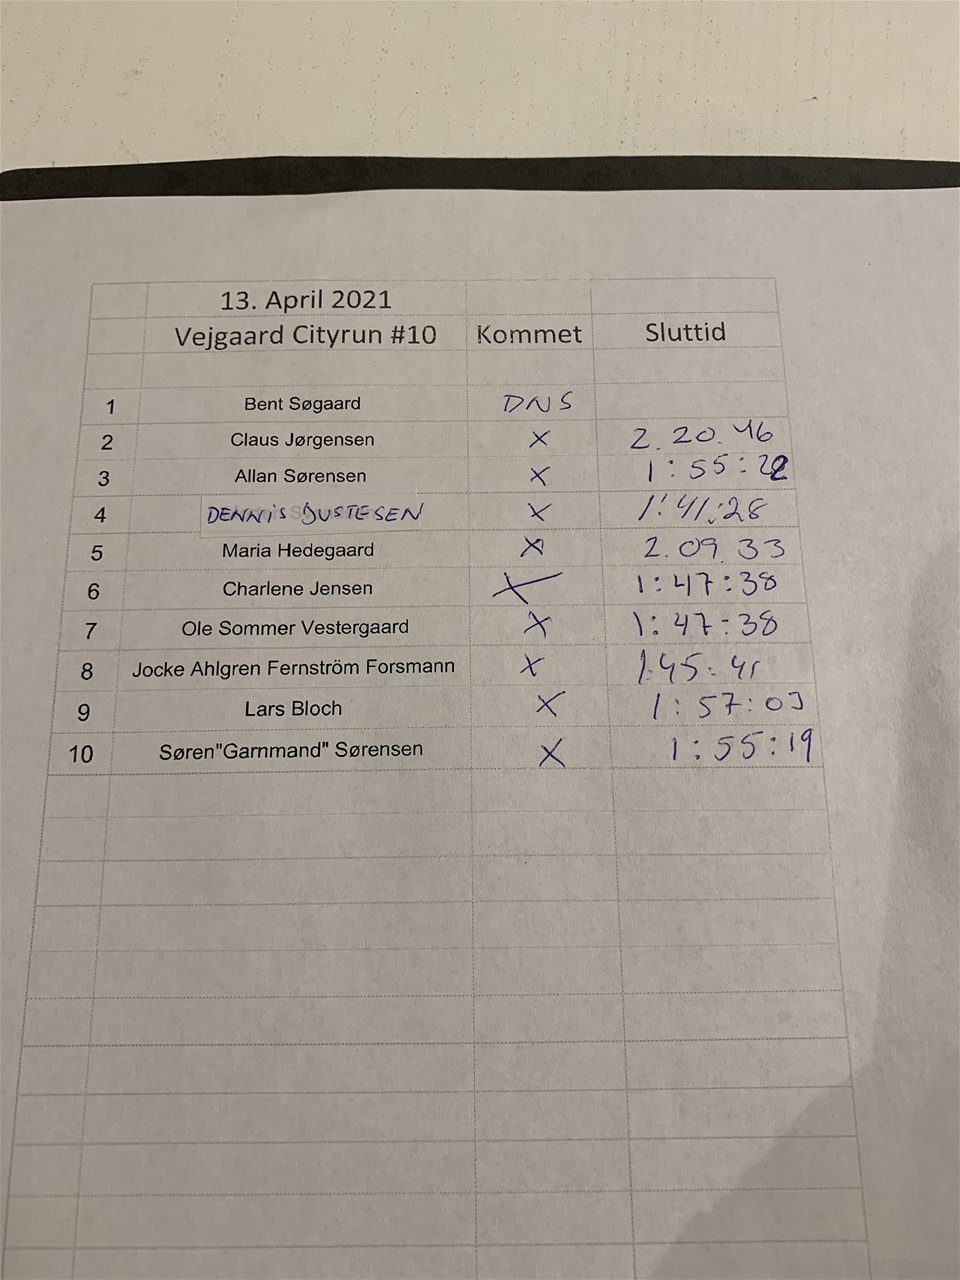 13. April 2021
Vejgaard Cityrun #10 Kommet Sluttid
1 Bent Søgaard DNS
2 Claus Jørgensen X 2.20.46
3 Allan Sørensen X 1:55:22
4 DENNiS JUSTESEN X 1:41:28
5 Maria Hedegaard X 2.09.33
6 Charlene Jensen X 1:47:38
7 Ole Sommer Vestergaard X 1:47:38
8 Jocke Ahlgren Fernström Forsmann X 1:45:41
9 Lars Bloch X 1:57:03
10 Søren"Garnmand" Sørensen X 1:55:19